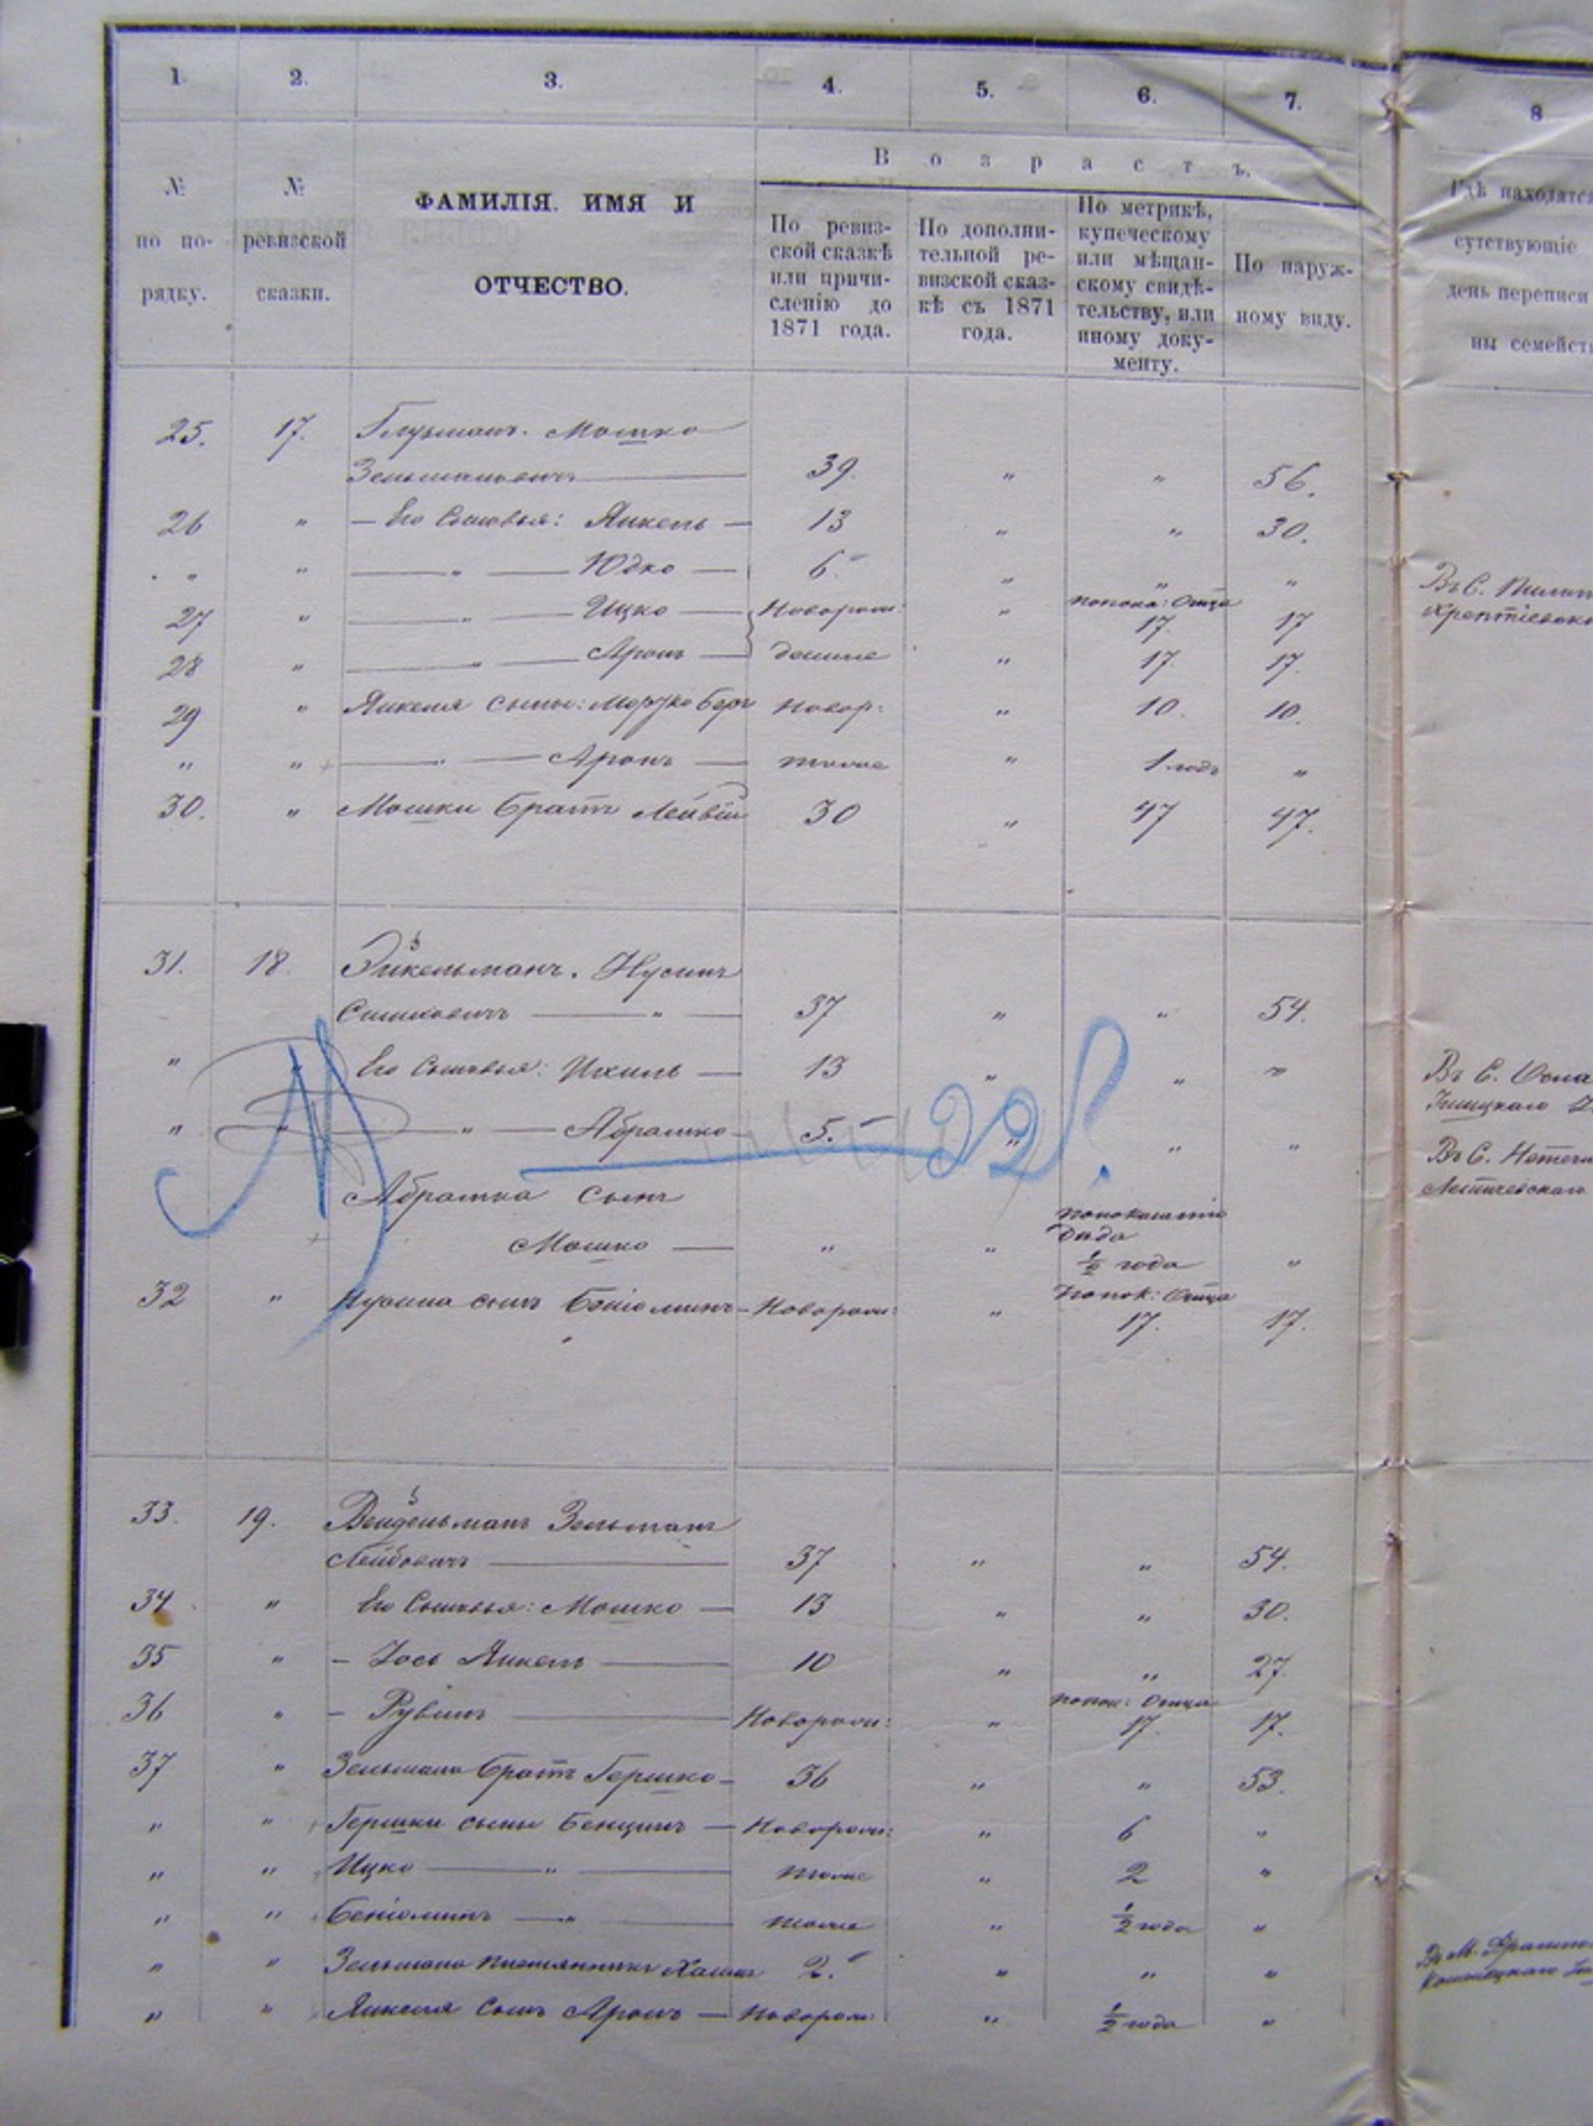 1. 2. 3. 4. 5. 6. 7. 8
№ по по- рядку.
№ ревизской сказки.
ФАМИЛІЯ. ИМЯ И
ОТЧЕСТВО.
Возрастъ.
По ревиз-
ской сказкѣ
или причи-
сленію до
1871 года.
По дополни-
тельной ре-
визской сказ-
кѣ съ 1871
года.
По метрикѣ,
купеческому
или мѣщан-
скому свидѣ-
тельству, или
иному доку-
менту.
По наруж-
ному виду.
Гдѣ находятся
сутствующіе
день переписи
ны семейст
25. 17. Глузманъ. Мошко
Зельмановичъ 39. " " 56.
26 " – Его Сыновья: Янкель – 13 " " 30.
" " " Юдко – 6. " " "
Въ С.
27 " " Ицко – Новорож: " попока: Отца 17. 17
28 " " Аронъ – денные " 17. 17.
29 " Янкеля сыны: Мордко Беръ Новор: " 10. 10.
" " " Аронъ – тоже " 1 годъ "
30. " Мошки братъ Лейвій 30 " 47 47.
31. 18. Эйкельманъ. Нусинъ
Симховичъ " 37 " " 54.
" " Его Сыновья: Ихиль – 13 " " "
Въ С.
" " " Абрамко 5. " " "
22
Въ С.
Летичевскаго
Абрамка сынъ
Мошко – " " попоказанію Дѣда ½ года "
32 " Нусина сынъ Беніоминъ – Новорож: " попок: Отца 17. 17.
33. 19. Вендельманъ Зельманъ
Лейбовичъ 37 " " 54.
34 " Его Сыновья: Мошко – 13 " " 30.
35 " – Іось Янкель 10 " " 27.
36 " – Рувинъ Новорож: " попок: Отца 17. 17.
37 " Зельмана братъ Гершко – 36 " " 53.
" " Гершки сыны Бенцинъ – Новорож: " 6 "
" " Ицко " тоже " 2 "
" " Беніоминъ – " тоже " ½ года "
" " Зельмана племянникъ 2. " " "
Въ М.
" " Янкеля сынъ Аронъ – Новорож: " ½ года "